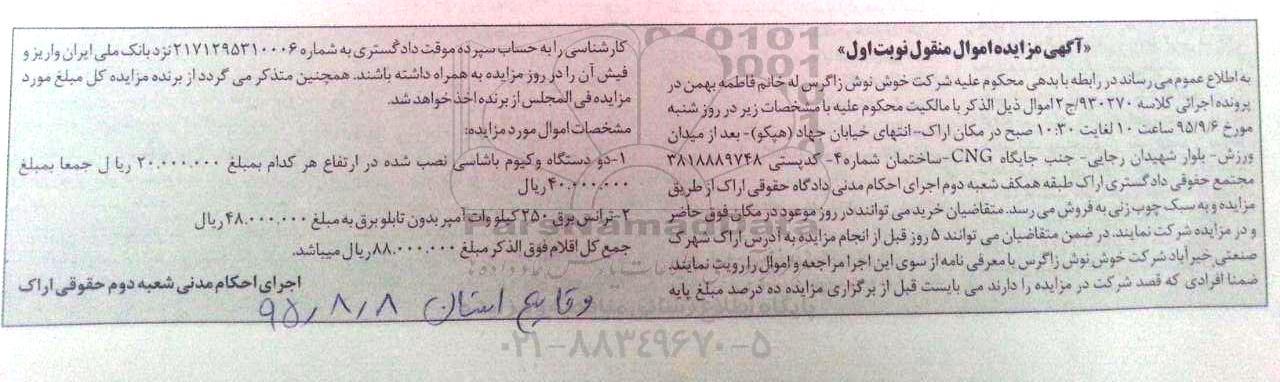 «آگهی مزایده اموال منقول نوبت اول»
به اطلاع عموم می رساند در رابطه با بدهی محکوم علیه شرکت خوش نوش زاگرس له خانم فاطمه بهمن در
پرونده اجرائی کلاسه ۹۳۰۲۷۰/ج۲ اموال ذیل الذکر با مالکیت محکوم علیه با مشخصات زیر در روز شنبه
مورخ ۹۵/۹/۶ ساعت ۱۰ لغایت ۱۰:۳۰ صبح در مکان اراک-انتهای خیابان جهاد (هپکو)- بعد از میدان
ورزش- بلوار شهیدان رجایی- جنب جایگاه CNG-ساختمان شماره۴- کدپستی ۳۸۱۸۸۸۹۷۴۸
مجتمع حقوقی دادگستری اراک طبقه همکف شعبه دوم اجرای احکام مدنی دادگاه حقوقی اراک از طریق
مزایده و به سبک چوب زنی به فروش می رسد. متقاضیان خرید می توانند در روز موعود در مکان فوق حاضر
و در مزایده شرکت نمایند. در ضمن متقاضیان می توانند ۵ روز قبل از انجام مزایده به آدرس اراک شهرک
صنعتی خیرآباد شرکت خوش نوش زاگرس با معرفی نامه از سوی این اجرا مراجعه و اموال را رویت نمایند.
ضمنا افرادی که قصد شرکت در مزایده را دارند می بایست قبل از برگزاری مزایده ده درصد مبلغ پایه
کارشناسی را به حساب سپرده موقت دادگستری به شماره ۲۱۷۱۲۹۵۳۱۰۰۰۶ نزد بانک ملی ایران واریز و
فیش آن را در روز مزایده به همراه داشته باشند. همچنین متذکر می گردد از برنده مزایده کل مبلغ مورد
مزایده فی المجلس از برنده اخذ خواهد شد.
مشخصات اموال مورد مزایده:
۱-دو دستگاه وکیوم باشاسی نصب شده در ارتفاع هر کدام بمبلغ ۲۰.۰۰۰.۰۰۰ ریال جمعا بمبلغ
۴۰.۰۰۰.۰۰۰ ریال
۲-ترانس برق ۲۵۰ کیلو وات آمپر بدون تابلو برق به مبلغ ۴۸.۰۰۰.۰۰۰ ریال
جمع کل اقلام فوق الذکر مبلغ ۸۸.۰۰۰.۰۰۰ ریال میباشد.
اجرای احکام مدنی شعبه دوم حقوقی اراک
وقایع استان ۹۵/۸/۸
ParsNamadData
۰۲۱-۸۸۳۴۹۶۷۰-۵